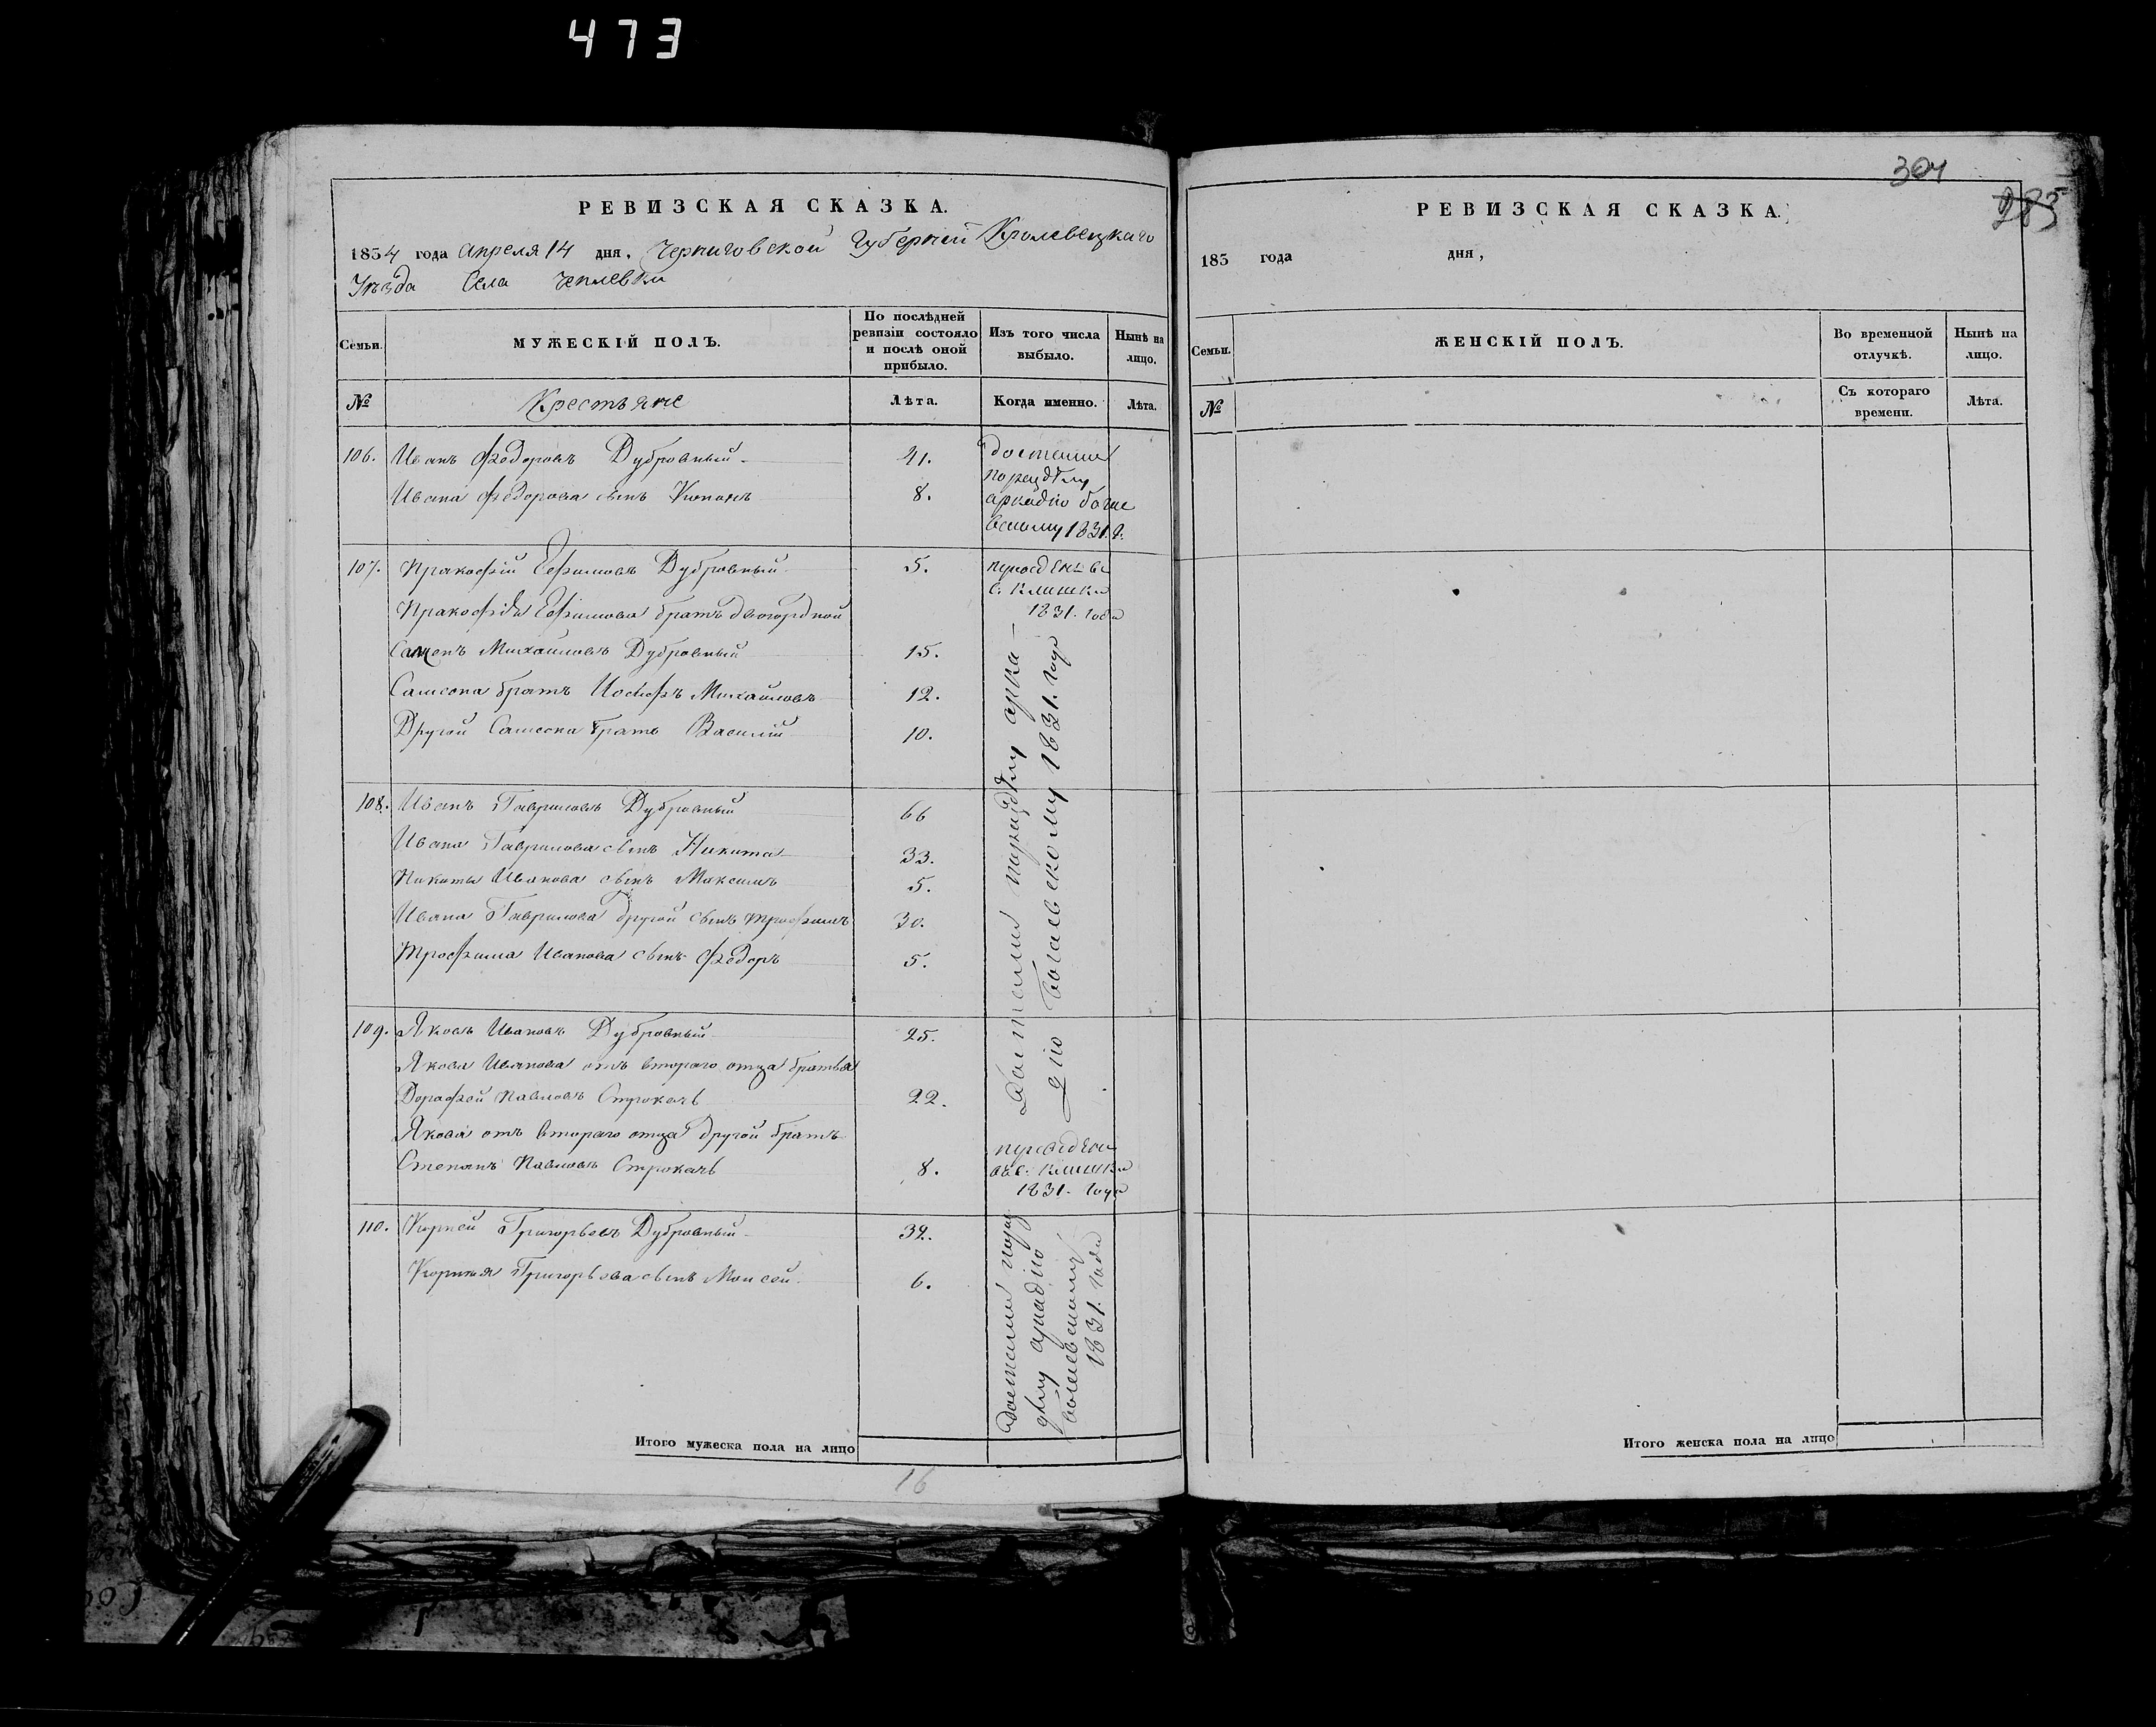 473
РЕВИЗСКАЯ СКАЗКА.
1834 года апреля 14 дня, Черниговской Губерніи Кролевецкаго
Уѣзда Села Чеплевки
Семьи.
МУЖЕСКІЙ ПОЛЪ.
По послѣдней ревизіи состояло и послѣ оной прибыло.
Изъ того числа выбыло.
Нынѣ на лицо.
№
Крестьяне
Лѣта.
Когда именно.
Лѣта.
106. Иванъ Федоровъ Дубровный 41.
Ивана Федорова сынъ 8.
Достались
по раздѣлу
аркадію богае
вскому 1831 г.
107. Пракофій Ефимовъ Дубровный 5.
переведенъ въ
с. Клишки
1831. года
Пракофія Ефимова братъ двоюродной
Михайловъ Дубровный 15.
Самсона братъ Иосифъ Михайловъ 12.
Другой Самсона братъ Василій 10.
108. Иванъ Гавриловъ Дубровный 66
Ивана Гаврилова сынъ Никита 33.
Никиты Иванова сынъ Максимъ 5.
Ивана Гаврилова другой сынъ Трофимъ 30.
Трофима Иванова сынъ Федоръ 5.
Достались по раздѣлу арка-
дію богаевскому 1831. году
109. Яковъ Ивановъ Дубровный 25.
Якова Иванова отъ втораго отца братья
Дорофей Павловъ Строкачь 22.
Якова отъ втораго отца другой братъ
Степанъ Павловъ Строкачь 8.
переведены
въ с. Клишки
1831. года
110. Корней Григорьевъ Дубровный 32.
Корнея Григорьева сынъ Моисей 6.
Достались по раз
дѣлу аркадію
богаевскому
1831. года
Итого мужеска пола на лицо
16
304
285
РЕВИЗСКАЯ СКАЗКА.
183 года дня,
Семьи.
ЖЕНСКІЙ ПОЛЪ.
Во временной отлучкѣ.
Нынѣ на лицо.
№
Съ котораго времени.
Лѣта.
Итого женска пола на лицо